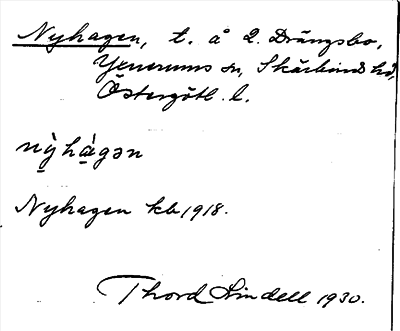 Nyhagen, t. å 2. Drängsbo,
Yxnerums sn, Skärkinds hd,
Östergötl. l.
nỳhàgən
Nyhagen kb, 1918.
Thord Lindell 1930.